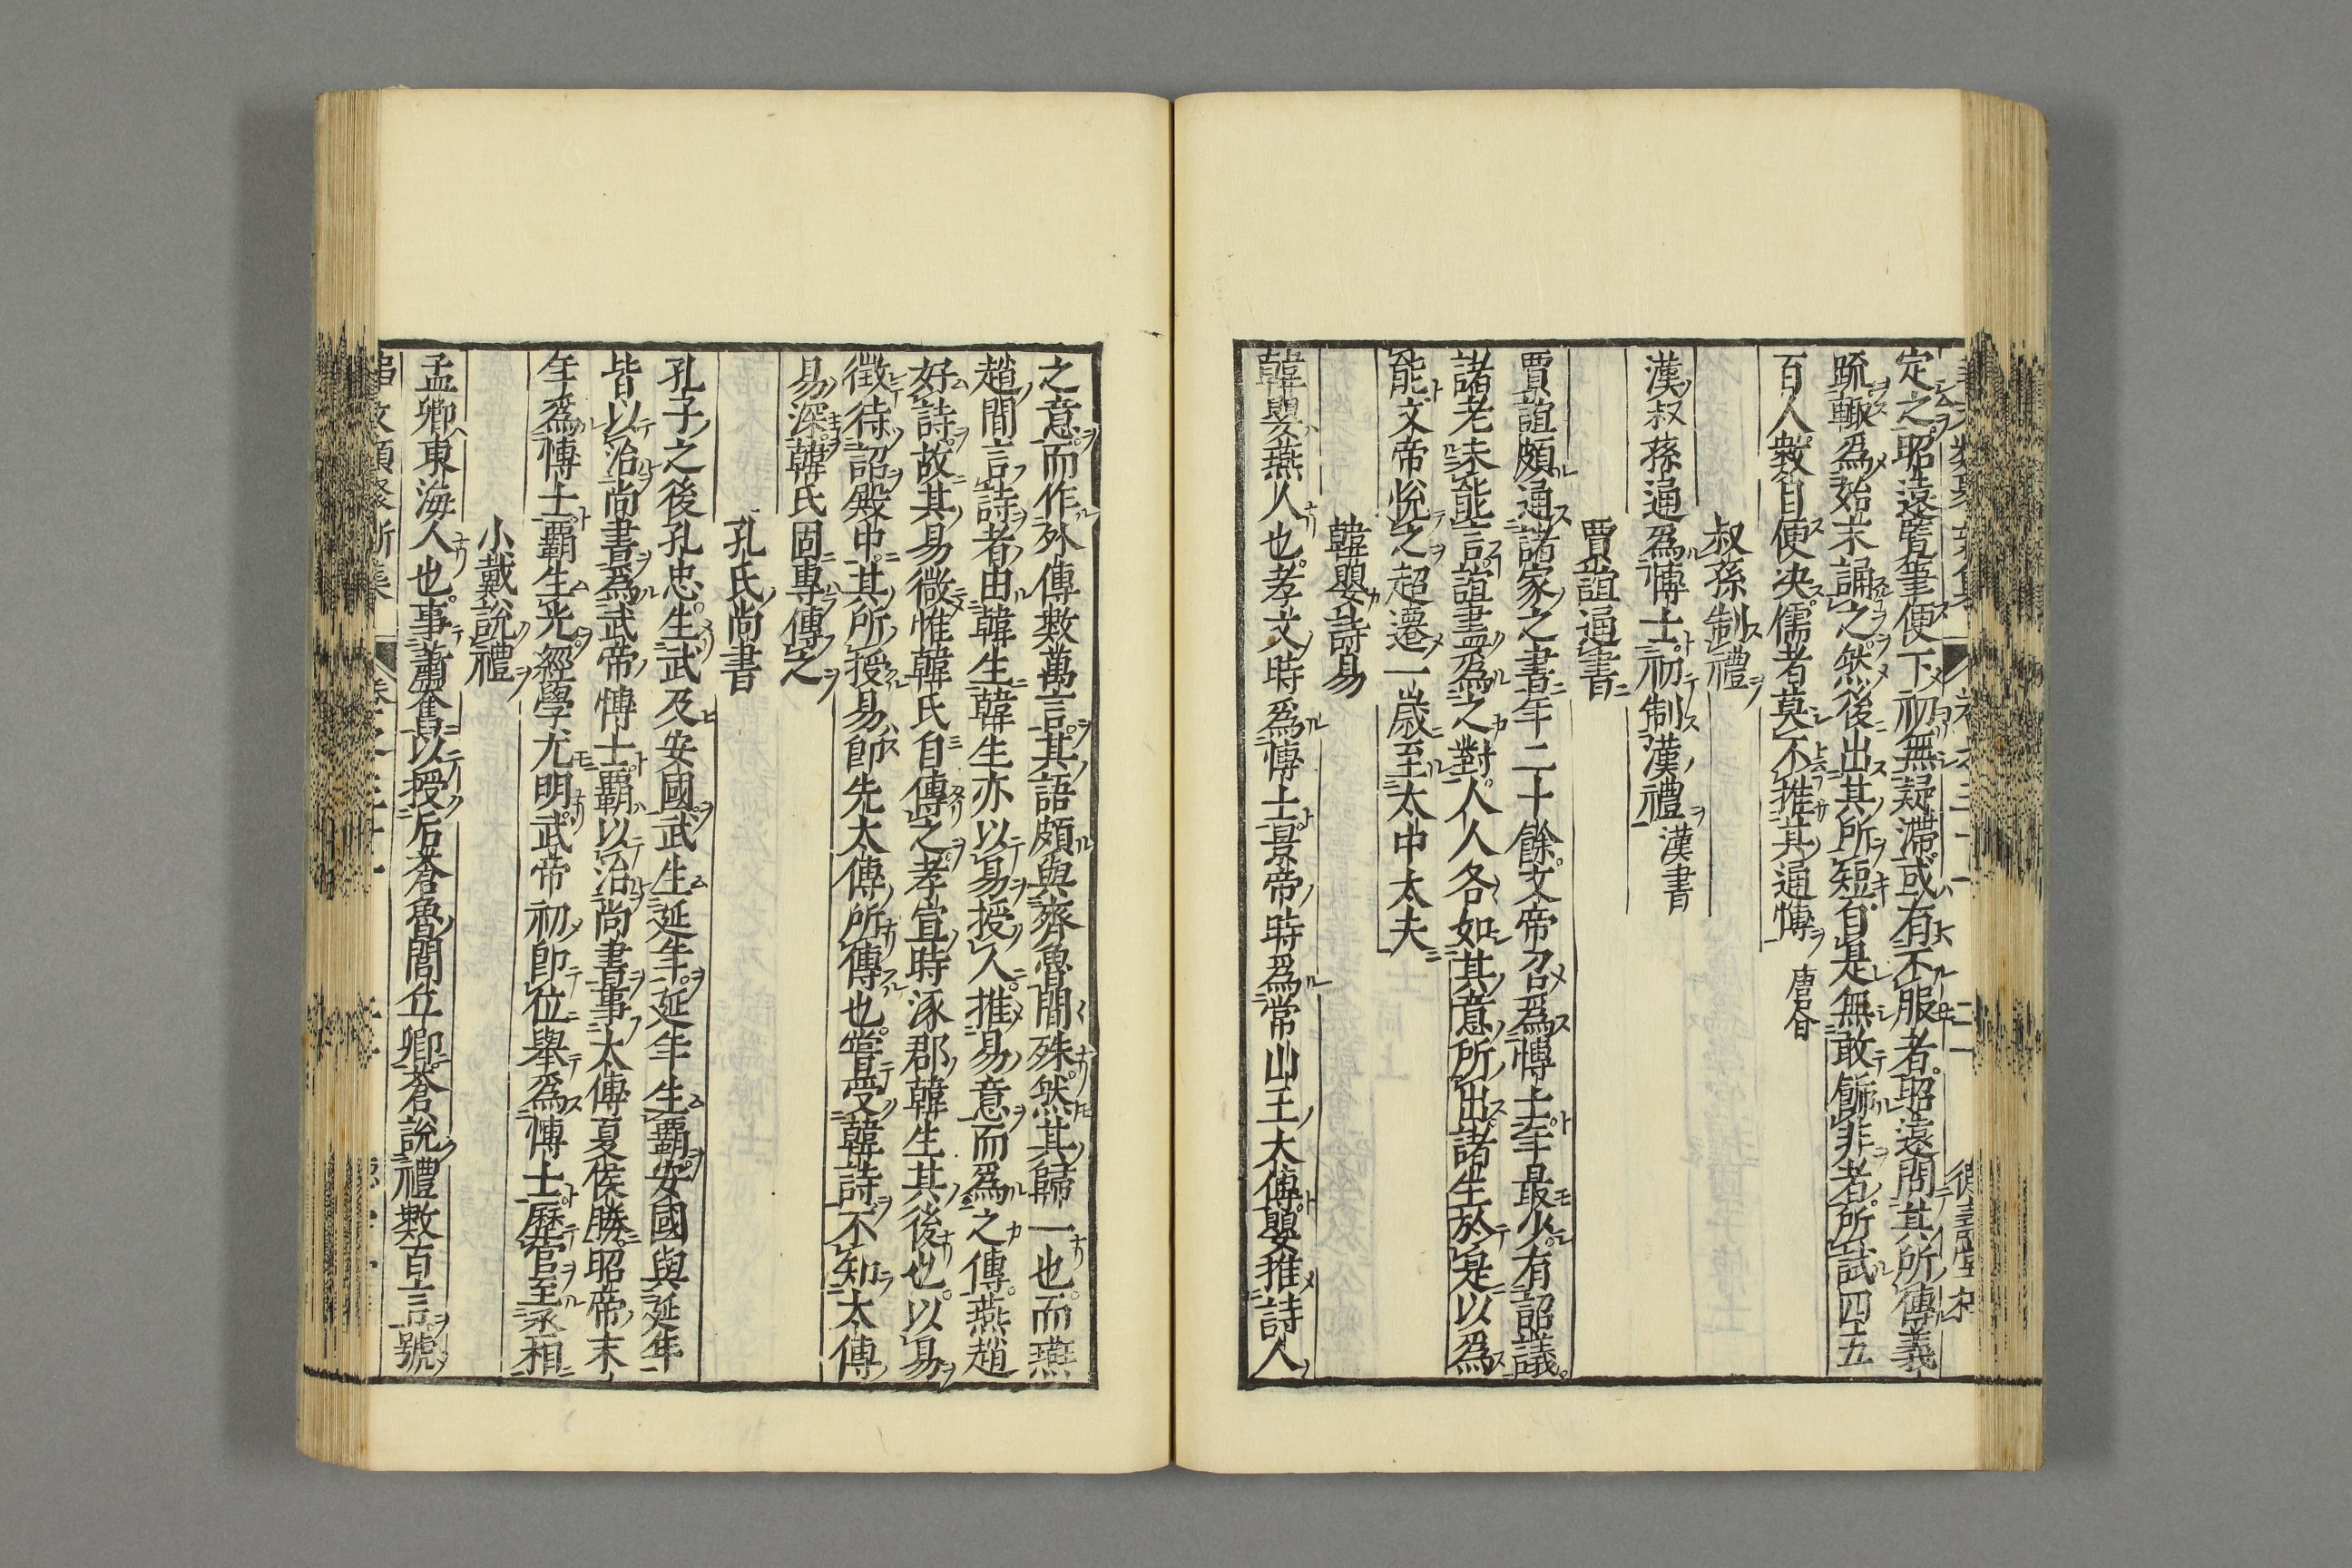 定之昭遠鬒筆便下初無疑滯或有不服者昭遠問其所傳義
䟽輙爲始末誦之然後出其所短自是無敢餙非者所試四五
百人數自便决儒者莫不推其通慱 唐
叔孫制禮
漢叔孫通爲慱士初制漢禮 漢書
賈誼通書
賈誼頗通諸家之書年二十餘文帝召爲慱士年最少有詔議
諸老未能言誼書盡爲之對人人各如其意所出諸生於是以爲
能文帝悅之超遷一歲至太中太夫
韓嬰詩易
韓嬰燕人也孝文時爲慱士景帝時爲常山王大傅嬰推詩人
之意而作外傳數萬言其語頗與齊魯間殊然其歸一也而燕
趙間言詩者由韓生韓生亦以易授人推易意而爲之傳燕趙
好詩故其易微惟韓氏自傳之孝宣時涿郡韓生其後也以易
徵待詔殿中其所授易即先太傅所傳也嘗受韓詩不知太傅
易深韓氏固專傳之
孔氏尚書
孔子之後孔忠生武及安國武生延年延年生覇安國與延年
皆以治尚書爲武帝慱士覇以治尚書事太傅夏侯勝昭帝末
年爲慱士覇生光經學尤明武帝初即位舉爲慱士歷官至丞相
小戴說禮
孟卿東海人也事蕭奮以授后蒼魯閭丘卿蒼說禮數百言號